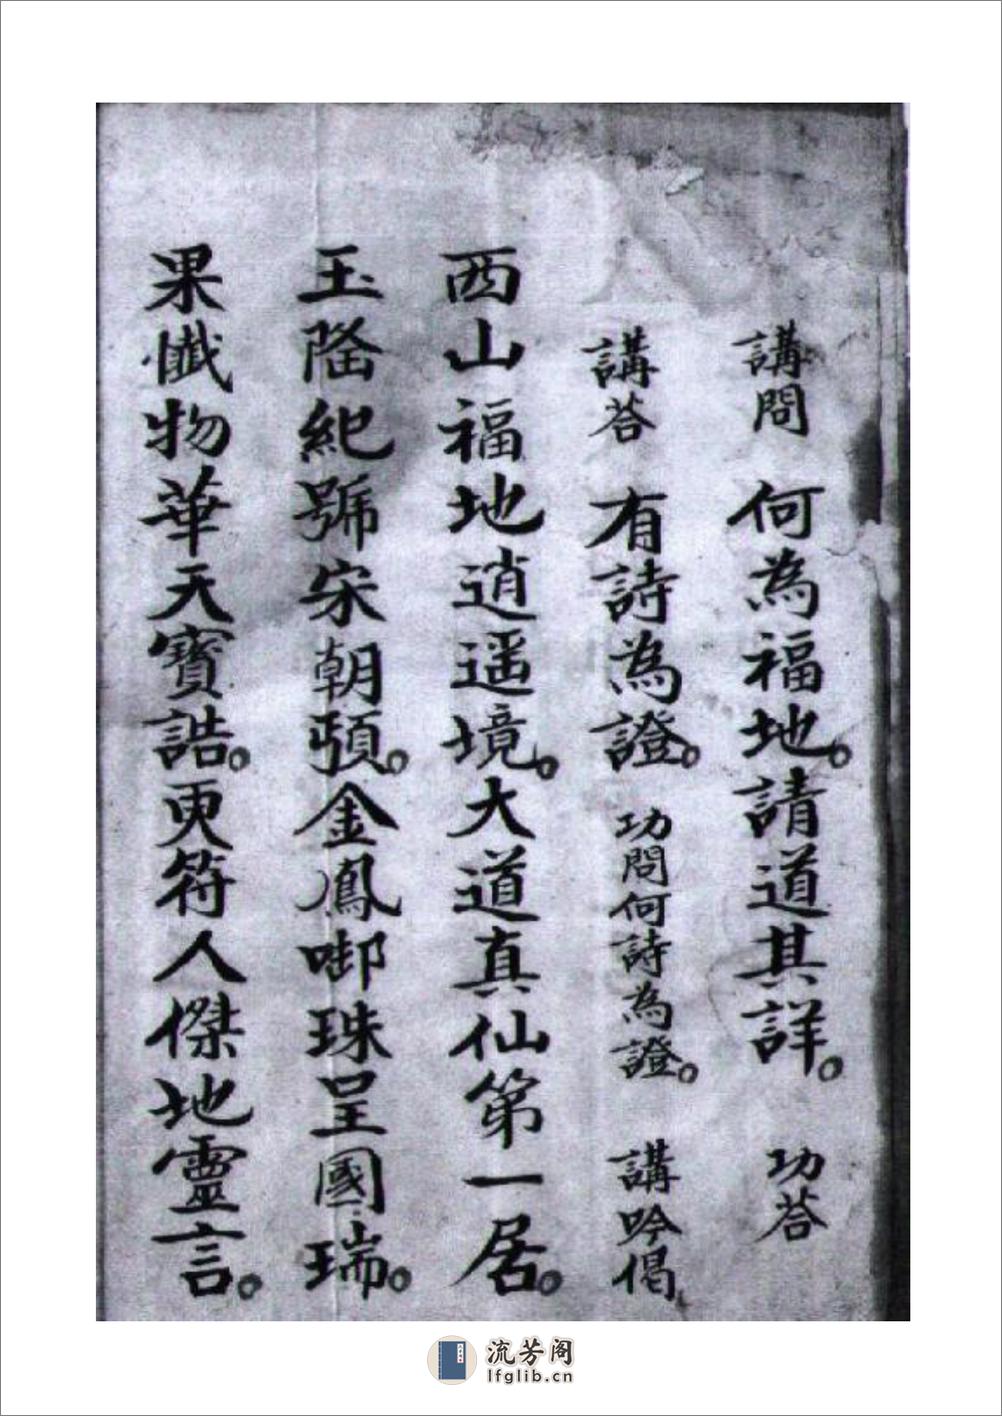 講問 何為福地。請道其詳。 功荅
講荅 有詩為證。 功問何詩為證。 講吟偈
西山福地逍遥境。大道真仙第一居。
玉隆紀號宋朝頭。金鳳啣珠呈國瑞。
果懺物華天寶誥。更符人傑地靈言。
流芳阁
lfglib.cn